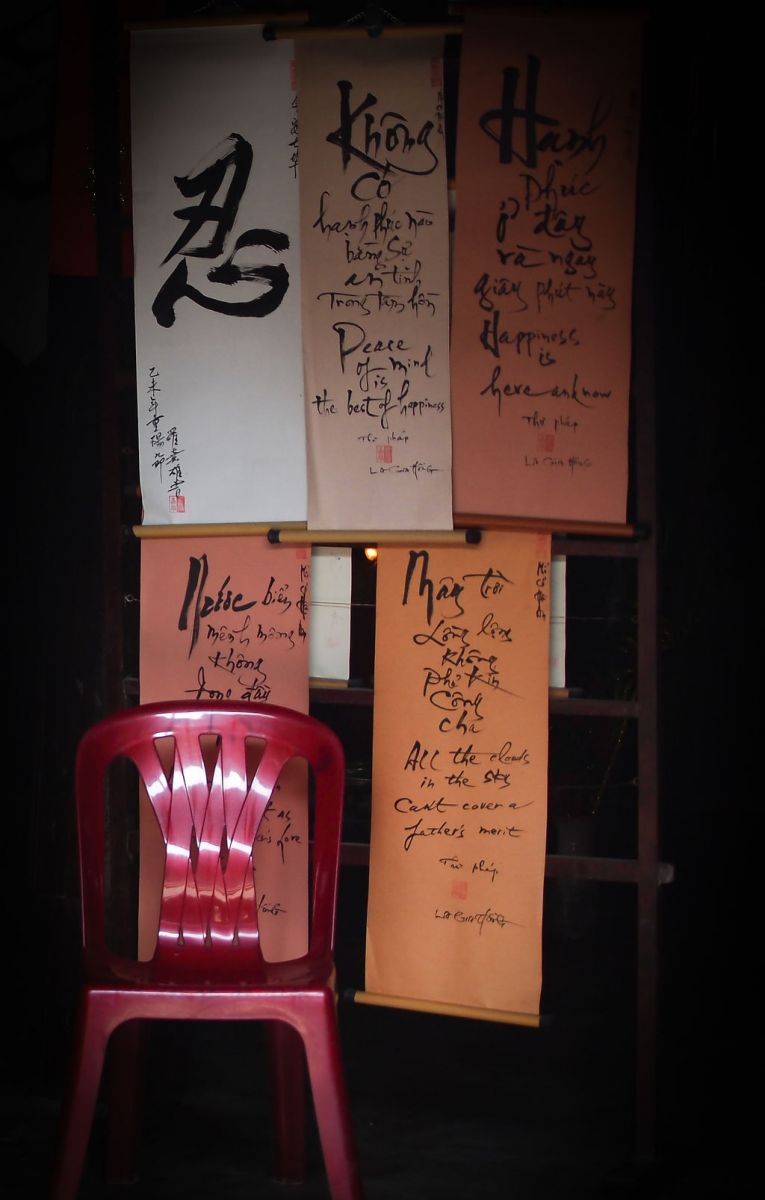 忍
乙未年重陽節
Không
Có
hạnh phúc nào
bằng sự
an tịnh
Trong tâm hồn
Peace
of mind
is
the best of happiness
Thư pháp
La Gia Hồng
Hạnh
phúc
ở đây
và ngay
giây phút này
Happiness
is
here and now
Thư pháp
La Gia Hồng
Nước biển
mênh mông
không
đong đầy
as
love
Hồng
Mây trời
Lồng lộng
không
phủ kín
Công
cha
All the clouds
in the sky
Can't cover a
father's merit
Thư pháp
La Gia Hồng